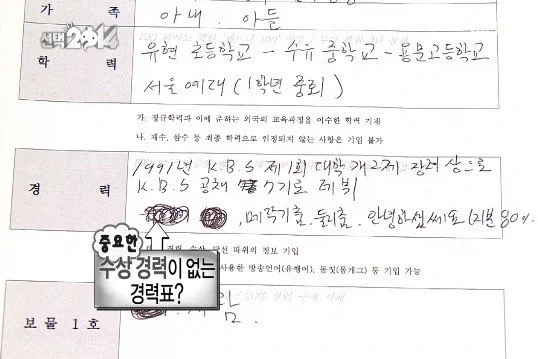 가 족
아내. 아들
선택 2014
학 력
유현 초등학교 - 수유 중학교 - 용문고등학교
서울예대 (1학년 중퇴)
가. 정규학력과 이에 준하는 외국의 교육과정을 이수한 학력 기재
나. 재수, 삼수 등 최종 학력으로 인정되지 않는 사항은 기입 불가
경 력
1991년 K.B.S 제1회 대학개그제 장려상으로
K.B.S 공채 7기로 데뷔
, 메뚜기춤, 안녕하섭쎄요 (지분 80%
경력, 수상, 당선 따위의 정보 기입
사용한 방송언어(유행어), 몸짓(몸개그) 등 기입 가능
중요한
수상 경력이 없는
경력표?
보물 1호